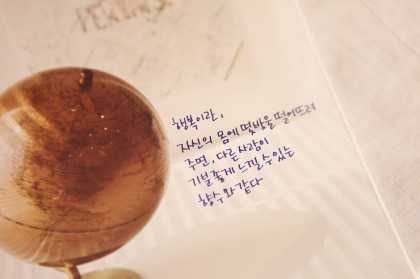 행복이란,
자신의 몸에 몇방울 떨어뜨려
주면, 다른사람이
기분좋게 느낄 수 있는
향수와 같다